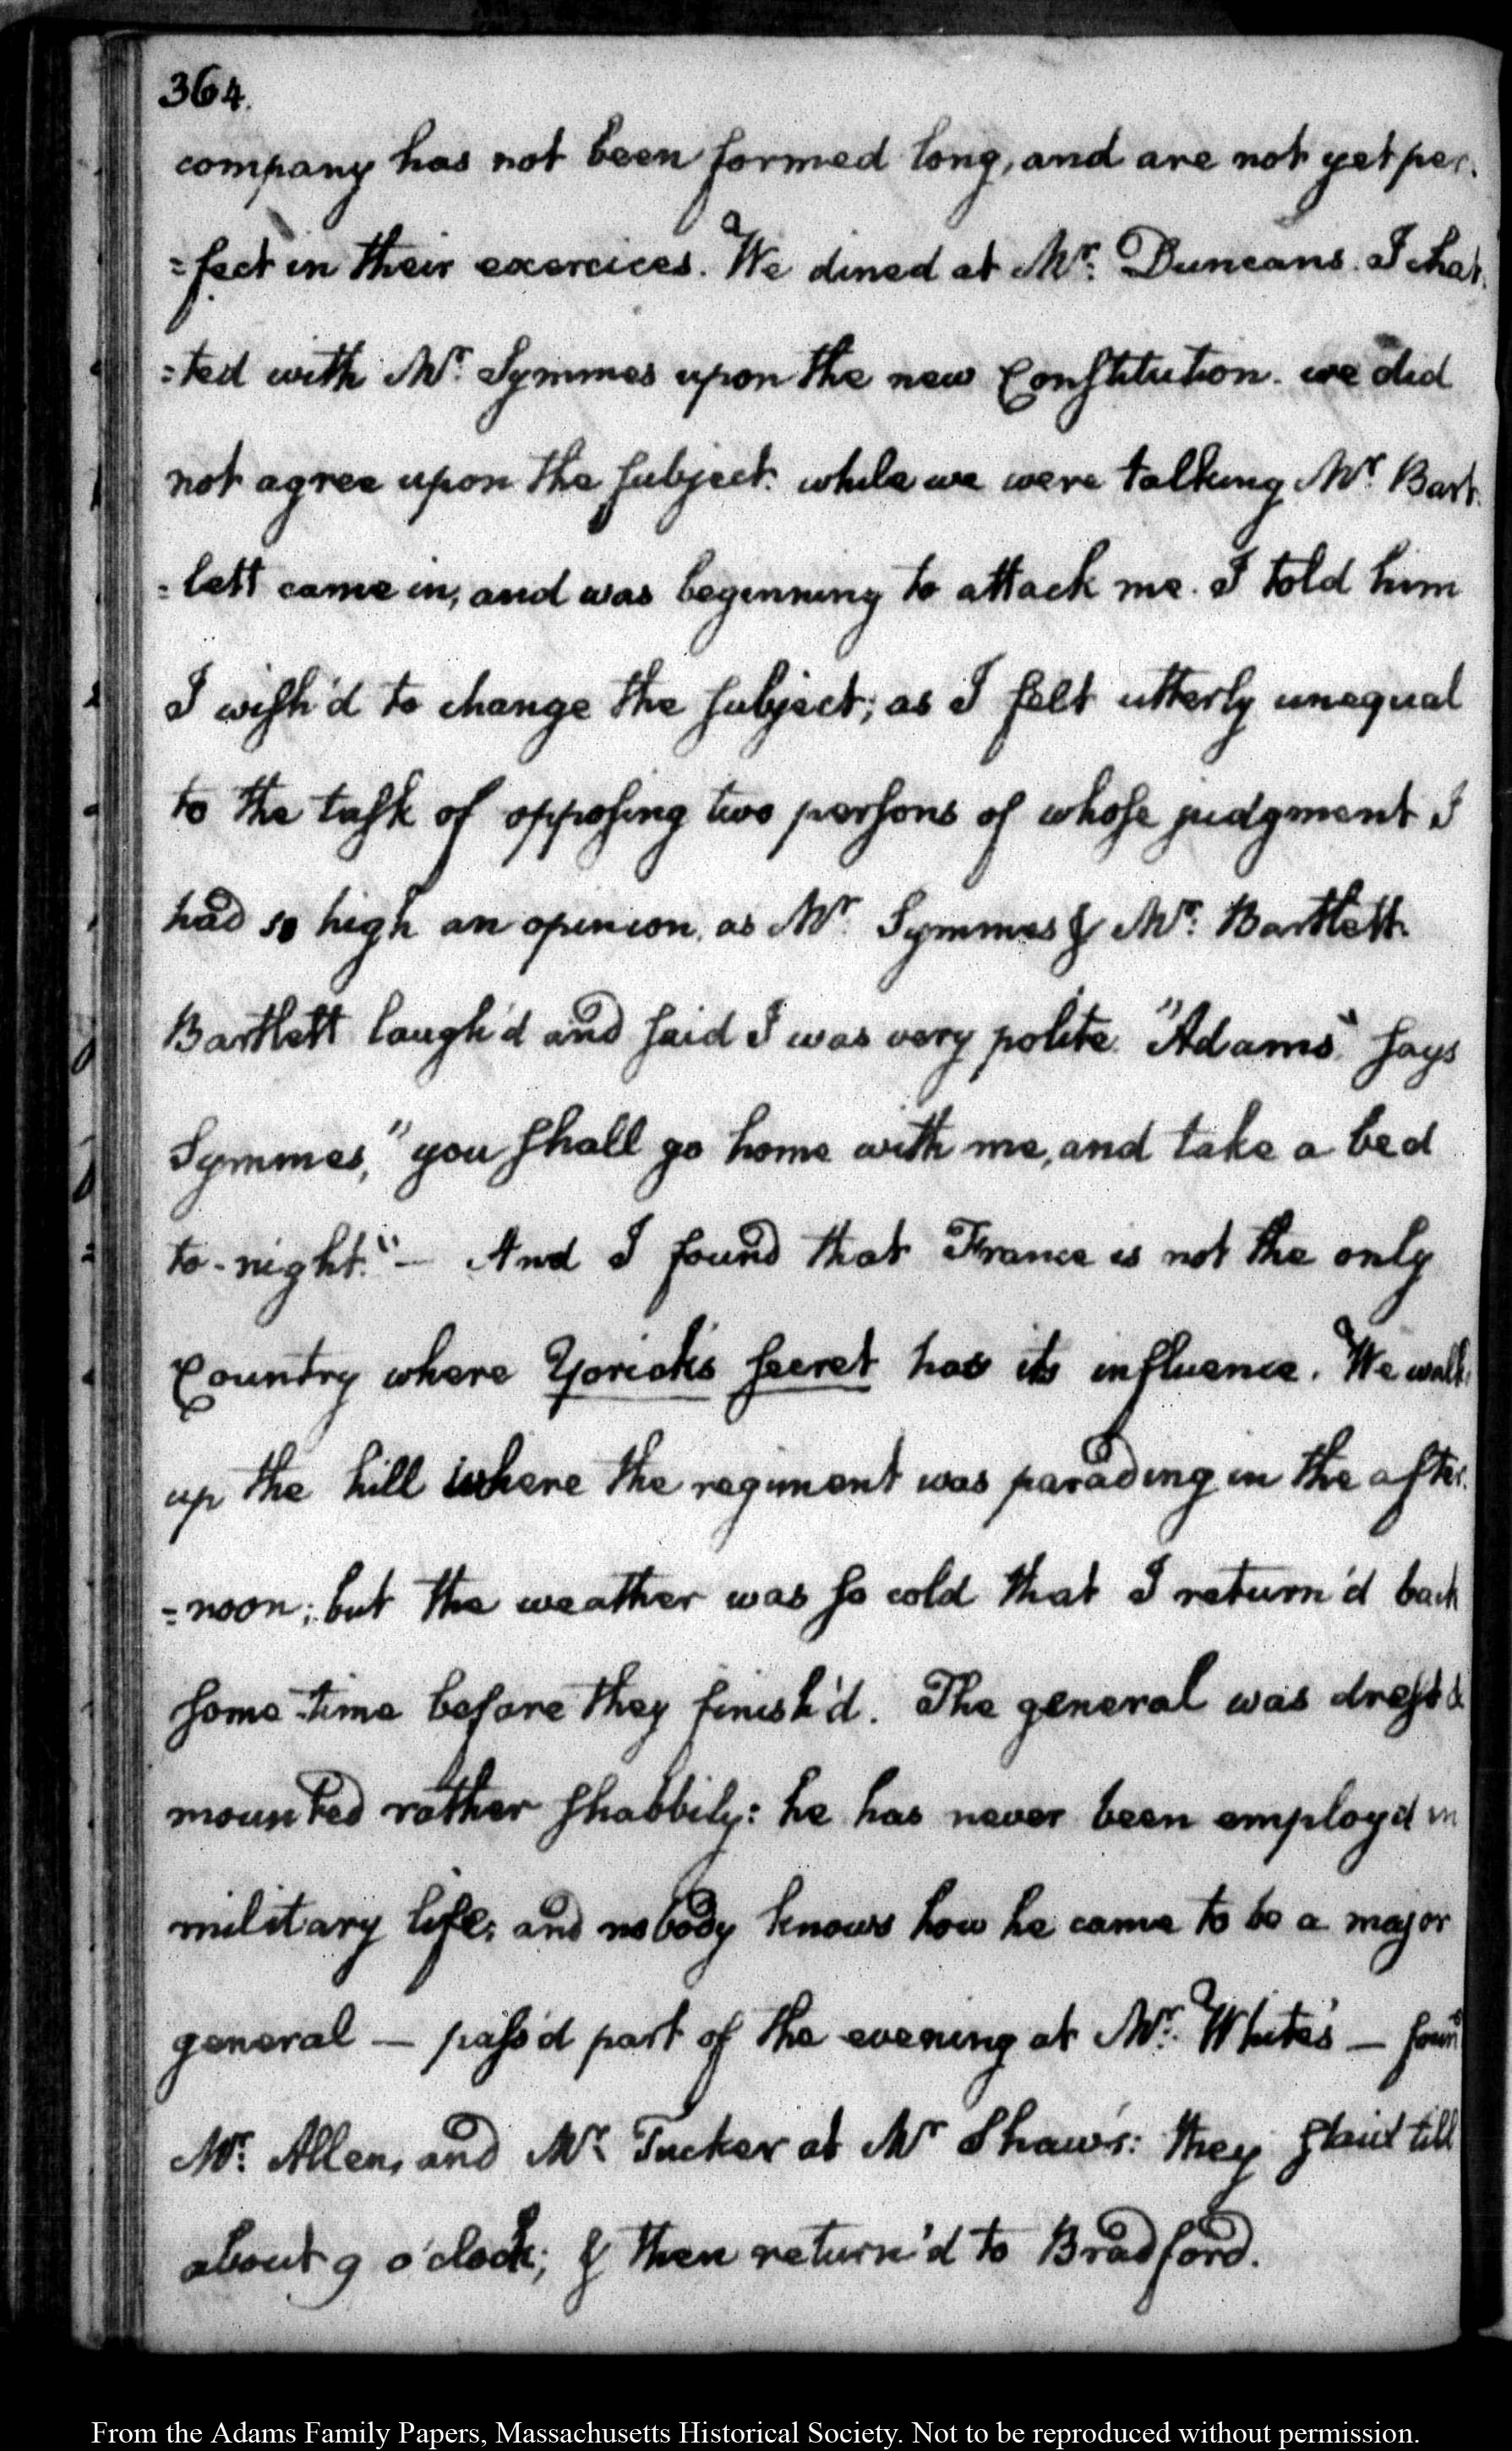 364.
company has not been formed long, and are not yet per-
=fect in their exercices. We dined at Mr: Duncans. I chat-
=ted with Mr: Symmes upon the new Constitution. we did
not agree upon the subject. while we were talking Mr. Bart-
=lett came in, and was beginning to attack me. I told him
I wish'd to change the subject; as I felt utterly unequal
to the task of opposing two persons of whose judgment I
had so high an opinion, as Mr. Symmes & Mr: Bartlett.
Bartlett laugh'd and said I was very polite. "Adams" says
Symmes, "you shall go home with me, and take a bed
to-night." — And I found that France is not the only
Country where Yorick's secret has its influence. We walk
up the hill where the regiment was parading in the after-
=noon; but the weather was so cold that I return'd back
some-time before they finish'd. The general was dresst &
mounted rather shabbily: he has never been employ'd in
military life; and nobody knows how he came to be a major
general — pass'd part of the evening at Mr: White's — found
Mr: Allen, and Mr: Tucker at Mr Shaw's: they staid till
about 9 o'clock; & then return'd to Bradford.
From the Adams Family Papers, Massachusetts Historical Society. Not to be reproduced without permission.